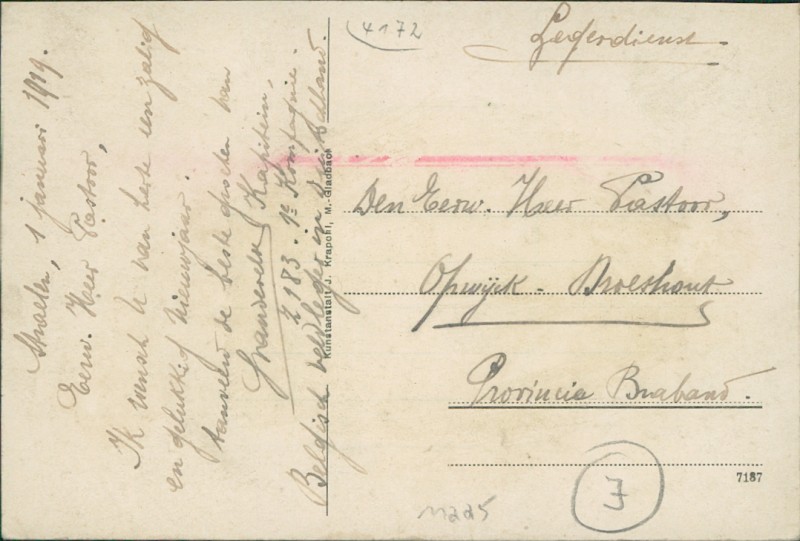 Straelen, 1 januari 1919.
Eerw. Heer Pastoor,
Ik wensch U van herte een zalig
en gelukkig Nieuwjaar.
Aanveerd de beste groeten van
Kapitein,
Z 183. 1e Kompagnie.
Belgisch veldleger in Duitschland.
4172
Legerdienst
Den Eerw. Heer Pastoor,
Opwijck - Droeshout
Provincie Braband.
Kunstanstalt J. Krapohl, M.-Gladbach
7187